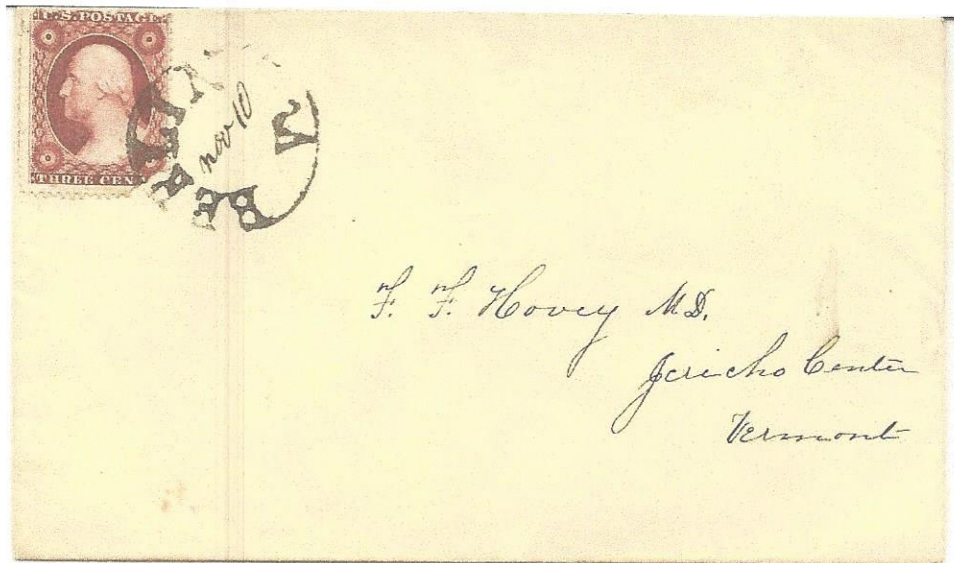 U.S. POSTAGE
THREE CEN
BERLIN
nov 10
F. F. Hovey M.D.
Jericho Center
Vermont